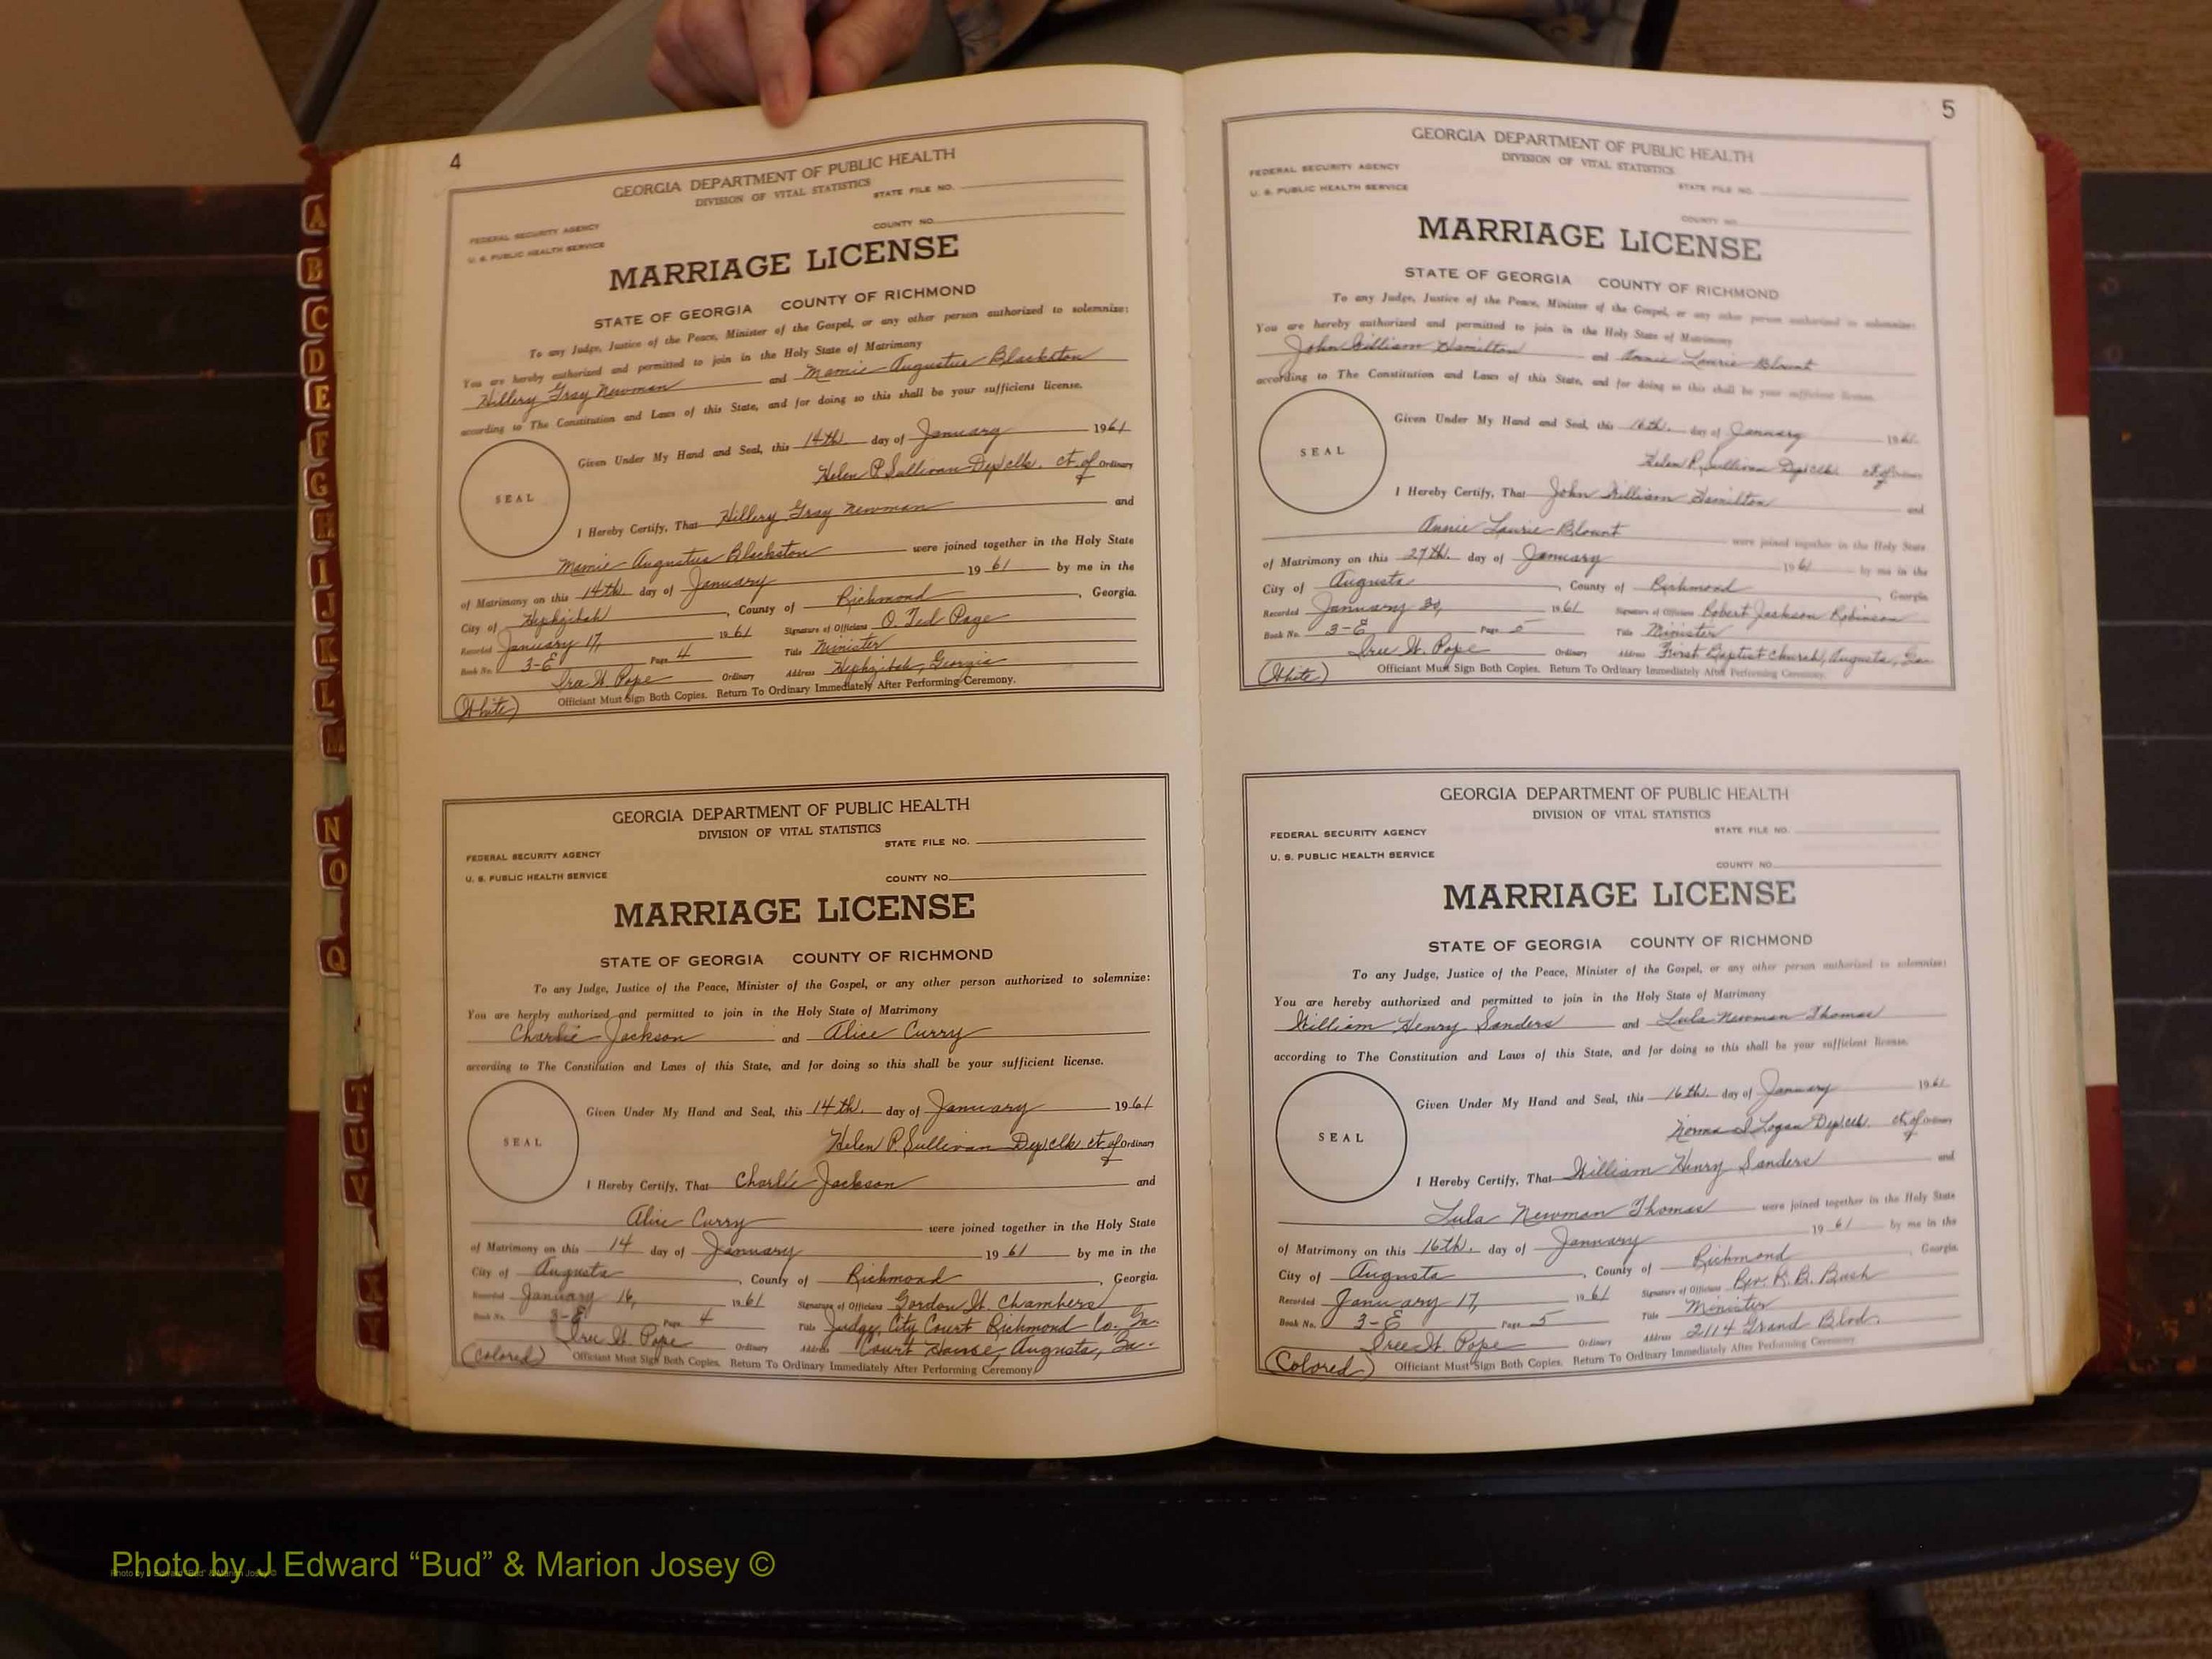 4
GEORGIA DEPARTMENT OF PUBLIC HEALTH
DIVISION OF VITAL STATISTICS
STATE FILE NO.
COUNTY NO.
FEDERAL SECURITY AGENCY
U. S. PUBLIC HEALTH SERVICE
MARRIAGE LICENSE
STATE OF GEORGIA COUNTY OF RICHMOND
To any Judge, Justice of the Peace, Minister of the Gospel, or any other person authorized to solemnize:
You are hereby authorized and permitted to join in the Holy State of Matrimony
Hillery Gray Newman and Mamie Augustus Blackston
according to The Constitution and Laws of this State, and for doing so this shall be your sufficient license.
Given Under My Hand and Seal, this 14th. day of January 1961
SEAL
Helen P. Sullivan Dep. clk. ct. of Ordinary
I Hereby Certify, That Hillery Gray Newman and
Mamie Augustus Blackston were joined together in the Holy State
of Matrimony on this 14th. day of January 1961 by me in the
City of Hephzibah, County of Richmond, Georgia.
Recorded January 17, 1961 Signature of Officiant O. Ted Page
Book No. 3-E Page 4 Title Minister
Ordinary Address Hephzibah, Georgia
(White) Officiant Must Sign Both Copies. Return To Ordinary Immediately After Performing Ceremony.
GEORGIA DEPARTMENT OF PUBLIC HEALTH
DIVISION OF VITAL STATISTICS
STATE FILE NO.
FEDERAL SECURITY AGENCY
U. S. PUBLIC HEALTH SERVICE
COUNTY NO.
MARRIAGE LICENSE
STATE OF GEORGIA COUNTY OF RICHMOND
To any Judge, Justice of the Peace, Minister of the Gospel, or any other person authorized to solemnize:
You are hereby authorized and permitted to join in the Holy State of Matrimony
Charlie Jackson and Alice Curry
according to The Constitution and Laws of this State, and for doing so this shall be your sufficient license.
Given Under My Hand and Seal, this 14th. day of January 1961
SEAL
Helen P. Sullivan Dep. clk. ct. of Ordinary
I Hereby Certify, That Charlie Jackson and
Alice Curry were joined together in the Holy State
of Matrimony on this 14 day of January 1961 by me in the
City of Augusta, County of Richmond, Georgia.
Recorded January 16, 1961 Signature of Officiant Gordon W. Chambers
Book No. 3-E Page 4 Title Judge, City Court Richmond Co. Ga.
Ordinary Address Court House, Augusta, Ga.
(Colored) Officiant Must Sign Both Copies. Return To Ordinary Immediately After Performing Ceremony
5
GEORGIA DEPARTMENT OF PUBLIC HEALTH
DIVISION OF VITAL STATISTICS
FEDERAL SECURITY AGENCY
U. S. PUBLIC HEALTH SERVICE
STATE FILE NO.
COUNTY NO.
MARRIAGE LICENSE
STATE OF GEORGIA COUNTY OF RICHMOND
To any Judge, Justice of the Peace, Minister of the Gospel, or any other person authorized to solemnize:
You are hereby authorized and permitted to join in the Holy State of Matrimony
John William Hamilton and Annie Laurie Blount
according to The Constitution and Laws of this State, and for doing so this shall be your sufficient license.
Given Under My Hand and Seal, this 16th. day of January 1961
SEAL
Helen P. Sullivan Dep. clk. ct. of Ordinary
I Hereby Certify, That John William Hamilton and
Annie Laurie Blount were joined together in the Holy State
of Matrimony on this 27th. day of January 1961 by me in the
City of Augusta, County of Richmond, Georgia
Recorded January 30, 1961 Signature of Officiant Robert Jackson Robinson
Book No. 3-E Page 5 Title Minister
Ordinary Address First Baptist Church, Augusta, Ga.
(White) Officiant Must Sign Both Copies. Return To Ordinary Immediately After Performing Ceremony.
GEORGIA DEPARTMENT OF PUBLIC HEALTH
DIVISION OF VITAL STATISTICS
FEDERAL SECURITY AGENCY
U. S. PUBLIC HEALTH SERVICE
STATE FILE NO.
COUNTY NO
MARRIAGE LICENSE
STATE OF GEORGIA COUNTY OF RICHMOND
To any Judge, Justice of the Peace, Minister of the Gospel, or any other person authorized to solemnize:
You are hereby authorized and permitted to join in the Holy State of Matrimony
William Henry Sanders and Lula Newman Thomas
according to The Constitution and Laws of this State, and for doing so this shall be your sufficient license.
Given Under My Hand and Seal, this 16th. day of January 1961
SEAL
Norma Logan Dep. clk. ct. of Ordinary
I Hereby Certify, That William Henry Sanders and
Lula Newman Thomas were joined together in the Holy State
of Matrimony on this 16th. day of January 1961 by me in the
City of Augusta, County of Richmond, Georgia
Recorded January 17, 1961 Signature of Officiant Rev. R. B. Bush
Book No. 3-E Page 5 Title Minister
Ordinary Address 2114 Grand Blvd.
(Colored) Officiant Must Sign Both Copies. Return To Ordinary Immediately After Performing Ceremony
A
B
C
D
E
F
G
H
I
J
K
L
M
N
O
Q
T
U
V
X
Y
Photo by J Edward “Bud” & Marion Josey ©
Photo by J Edward “Bud” & Marion Josey ©